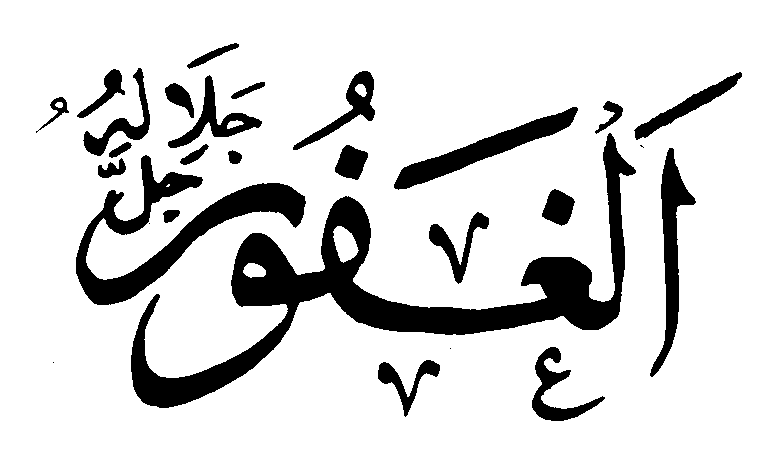 اَلْغَفُورُ
جَلَّ جَلَالُهُ